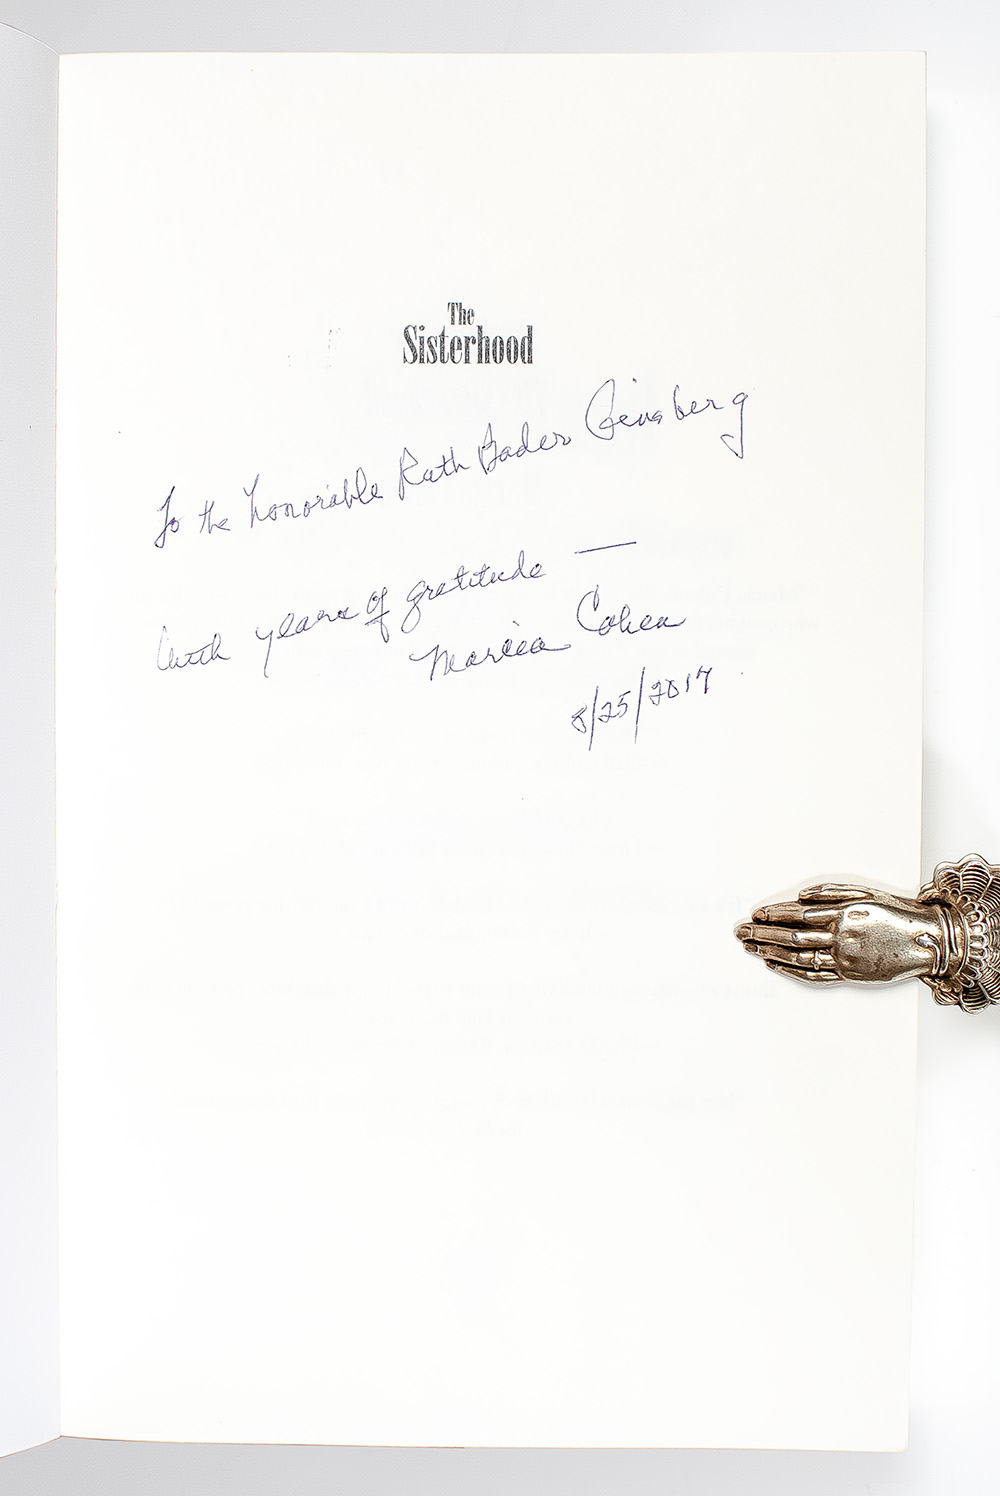 The
Sisterhood
To the honorable Ruth Bader Ginsberg
With years of gratitude —
Marcia Cohen
8/25/2017